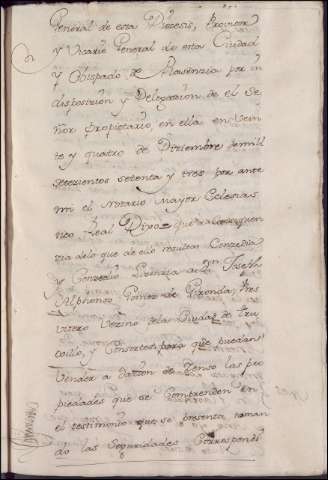 General de esta Diocesis, Provisor
y Vicario General de esta Ciudad
y Obispado de Plasencia por in
disposicion y Delegacion de el Se
ñor propietario, en ella en Vein
te y quatro de Diziembre de mill
setezientos setenta y tres por ante
mi el Notario Mayor Eclesias
tico, Real Dixo que a consequen
zia de lo que de ello resulta Conzedia
y Conzedio Lizencia a Dn Joseph
Alphonso Gomez de Presbi
vitero Vezino de la Ciudad de Tru
xillo, y Consortes para que puedan
Vender a dazion de Zenso las pro
piedades que se Comprenden en
el testimonio que se presenta toman
do las Seguridades Correspondi